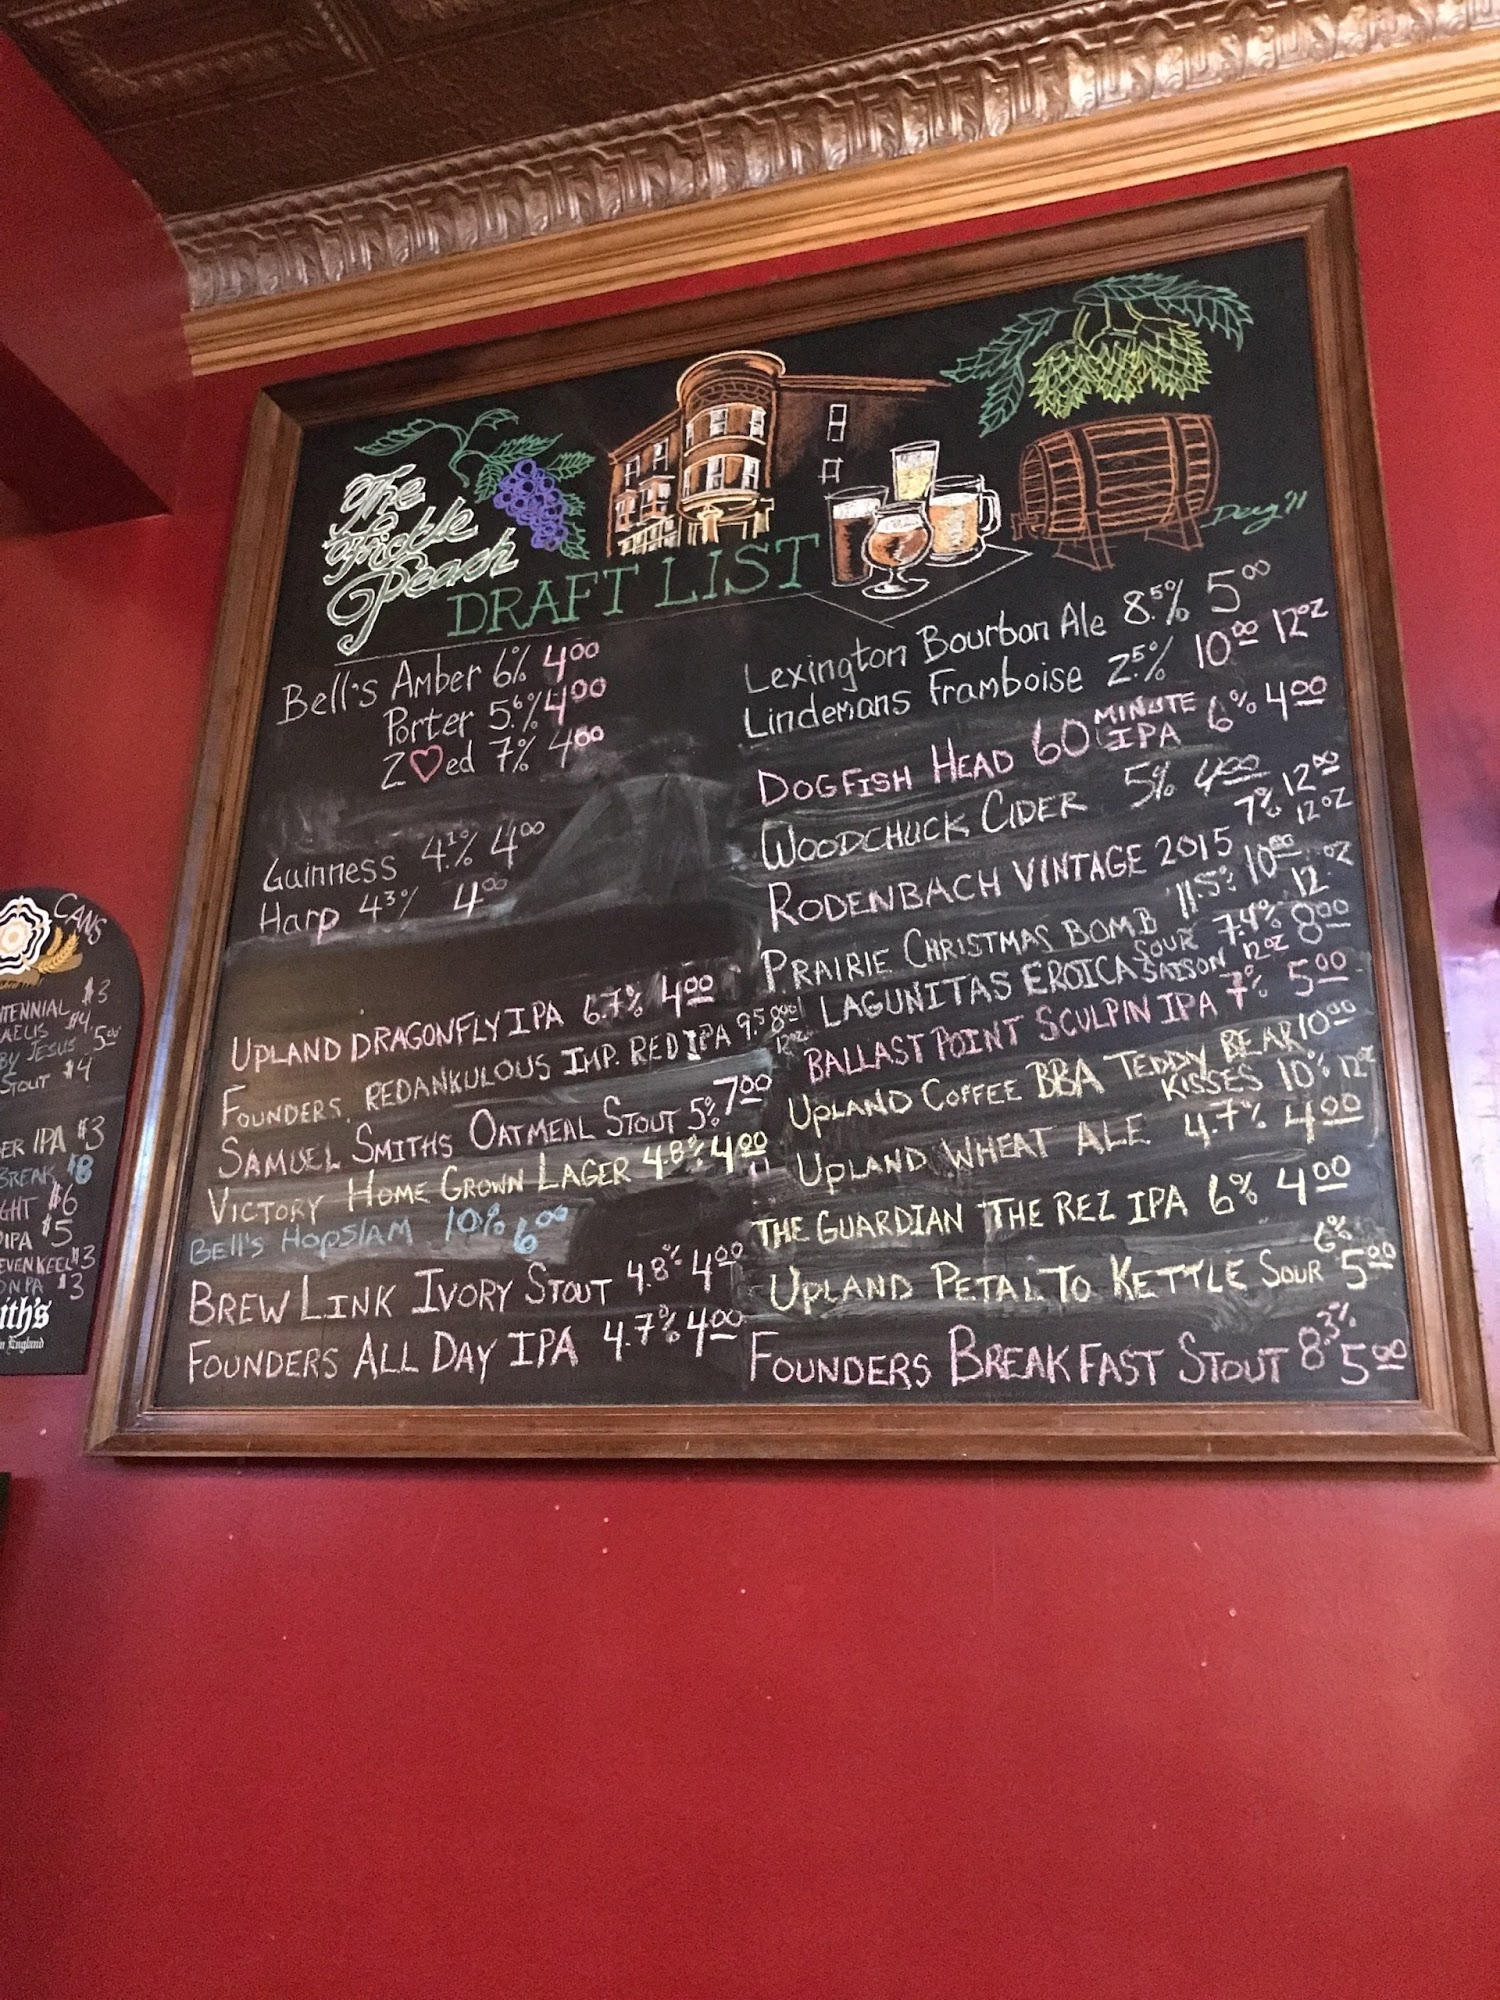 The
Fickle
Peach
DRAFT LIST
Bell's Amber 6% 4.00
Porter 5.6% 4.00
2♡ed 7% 4.00
Guinness 4.1% 4.00
Harp 4.3% 4.00
UPLAND DRAGONFLY IPA 6.7% 4.00
FOUNDERS REDANKULOUS IMP. RED IPA 9.5 8.00
12oz
SAMUEL SMITHS OATMEAL STOUT 5% 7.00
VICTORY HOME GROWN LAGER 4.8% 4.00
BELL'S HOPSLAM 10% 6.00
BREW LINK IVORY STOUT 4.8% 4.00
FOUNDERS ALL DAY IPA 4.7% 4.00
Lexington Bourbon Ale 8.5% 5.00
Lindemans Framboise 2.5% 10.00 12oz
DOGFISH HEAD 60 MINUTE IPA 6% 4.00
WOODCHUCK CIDER 5% 4.00
RODENBACH VINTAGE 2015 7% 12.00 12oz
PRAIRIE CHRISTMAS BOMB 11.5% 10.00 12oz
LAGUNITAS EROICA SOUR SAISON 7.4% 8.00 12oz
BALLAST POINT SCULPIN IPA 7% 5.00
UPLAND COFFEE BBA TEDDY BEAR 10.00
KISSES 10% 12oz
UPLAND WHEAT ALE 4.7% 4.00
THE GUARDIAN THE REZ IPA 6% 4.00
UPLAND PETAL TO KETTLE SOUR 6% 5.00
FOUNDERS BREAKFAST STOUT 8.3% 5.00
CANS
NTENNIAL $3
AELIS $4
BY JESUS 5.00
STOUT $4
ER IPA $3
BREAK $8
GHT $6
IPA $5
EVEN KEEL $3
ON PA $3
ith's
England